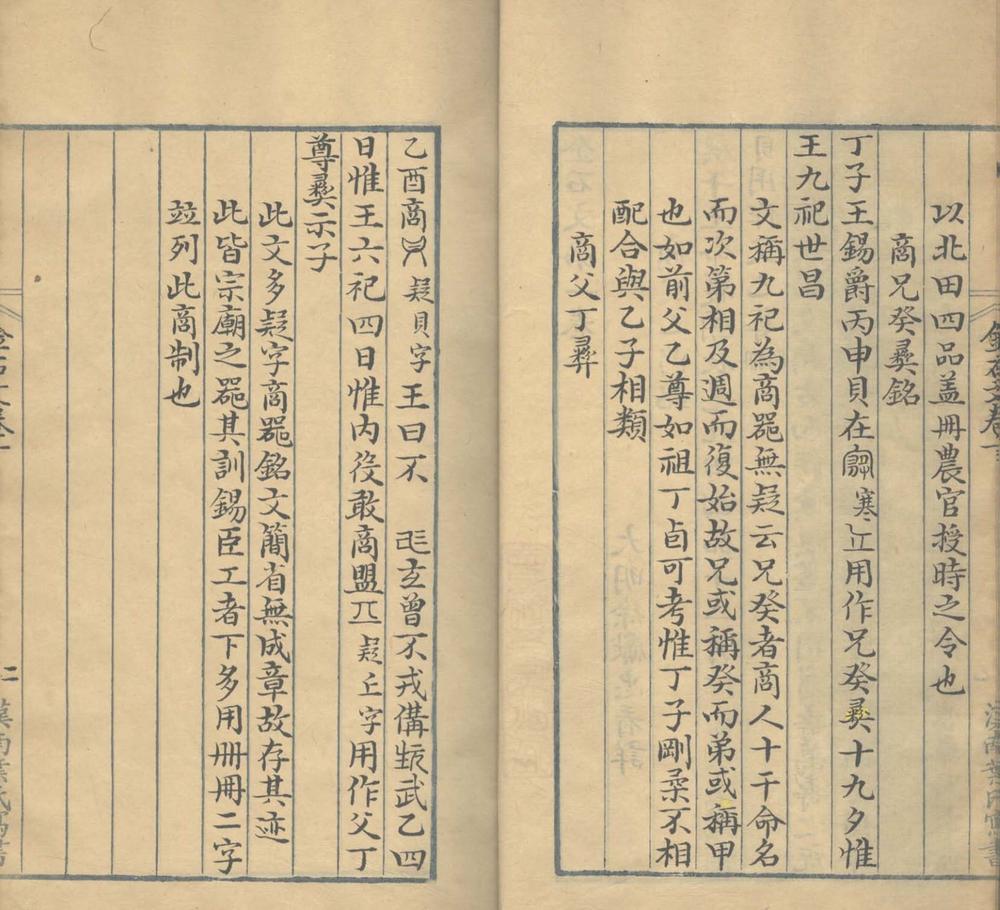 以北田四品盖冊農官授時之令也
商兄癸彝銘
丁子王錫爵丙申貝在寒用作兄癸彝十九夕惟
王九祀世昌
文稱九祀為商器無疑云兄癸者商人十干命名
而次第相及週而復始故兄或稱癸而弟或稱甲
也如前父乙尊如祖丁卣可考惟丁子剛柔不相
配合與乙子相類
商父丁彝
乙酉商疑貝字王曰不玄曾不戎備武乙四
日惟王六祀四日惟内役敢商盟疑丘字用作父丁
尊彝示子
此文多疑字商器銘文簡省無成章故存其迹
此皆宗廟之器其訓錫臣工者下多用冊冊二字
竝列此商制也